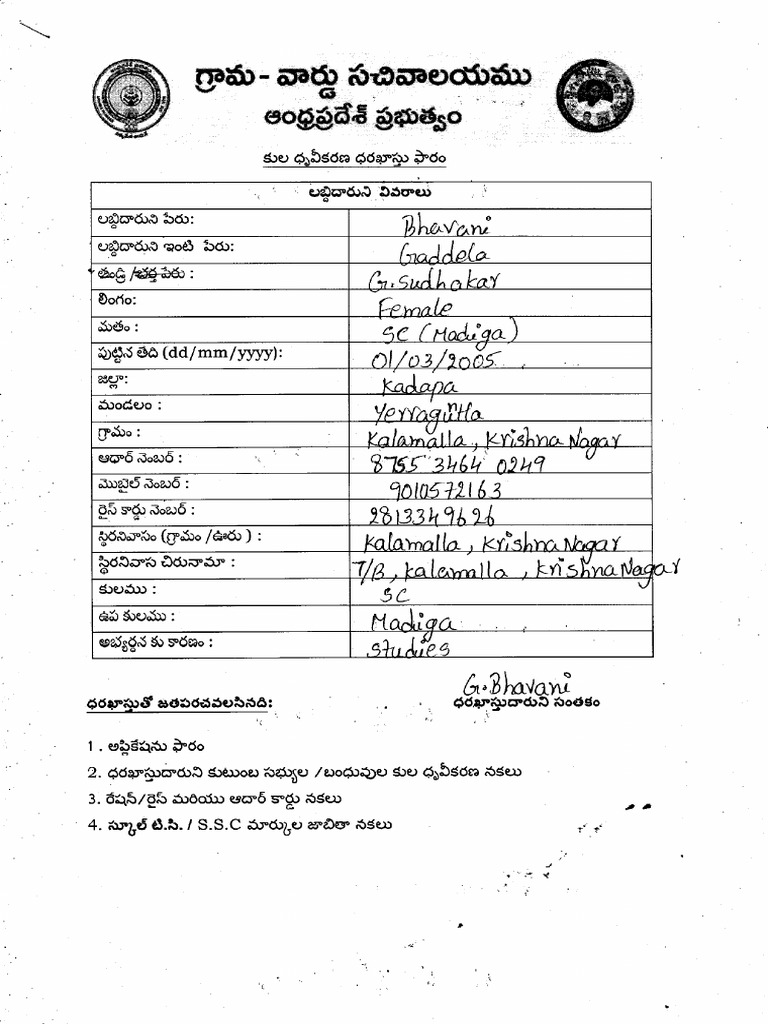 గ్రామ - వార్డు సచివాలయము
ఆంధ్రప్రదేశ్ ప్రభుత్వం
కుల ధృవీకరణ ధరఖాస్తు ఫారం
లబ్ధిదారుని వివరాలు
లబ్ధిదారుని పేరు: Bhavani
లబ్ధిదారుని ఇంటి పేరు: Gaddela
తండ్రి /భర్త పేరు : G.Sudhakar
లింగం: Female
మతం : SC (Madiga)
పుట్టిన తేది (dd/mm/yyyy): 01/03/2005
జిల్లా: Kadapa
మండలం : Yerraguntla
గ్రామం : Kalamalla, Krishna Nagar
ఆధార్ నెంబర్ : 8755 3464 0249
మొబైల్ నెంబర్ : 9010572163
రైస్ కార్డు నెంబర్ : 2813349626
స్థిరనివాసం (గ్రామం /ఊరు ) : Kalamalla, Krishna Nagar
స్థిరనివాస చిరునామా : 7/B, Kalamalla, Krishna Nagar
కులము : SC
ఉప కులము : Madiga
అభ్యర్థన కు కారణం : Studies
G.Bhavani
ధరఖాస్తుతో జతపరచవలసినది: ధరఖాస్తుదారుని సంతకం
1 . అప్లికేషను ఫారం
2. ధరఖాస్తుదారుని కుటుంబ సభ్యుల /బంధువుల కుల ధృవీకరణ నకలు
3. రేషన్/రైస్ మరియు ఆదార్ కార్డు నకలు
4. స్కూల్ టి.సి. / S.S.C మార్కుల జాబితా నకలు